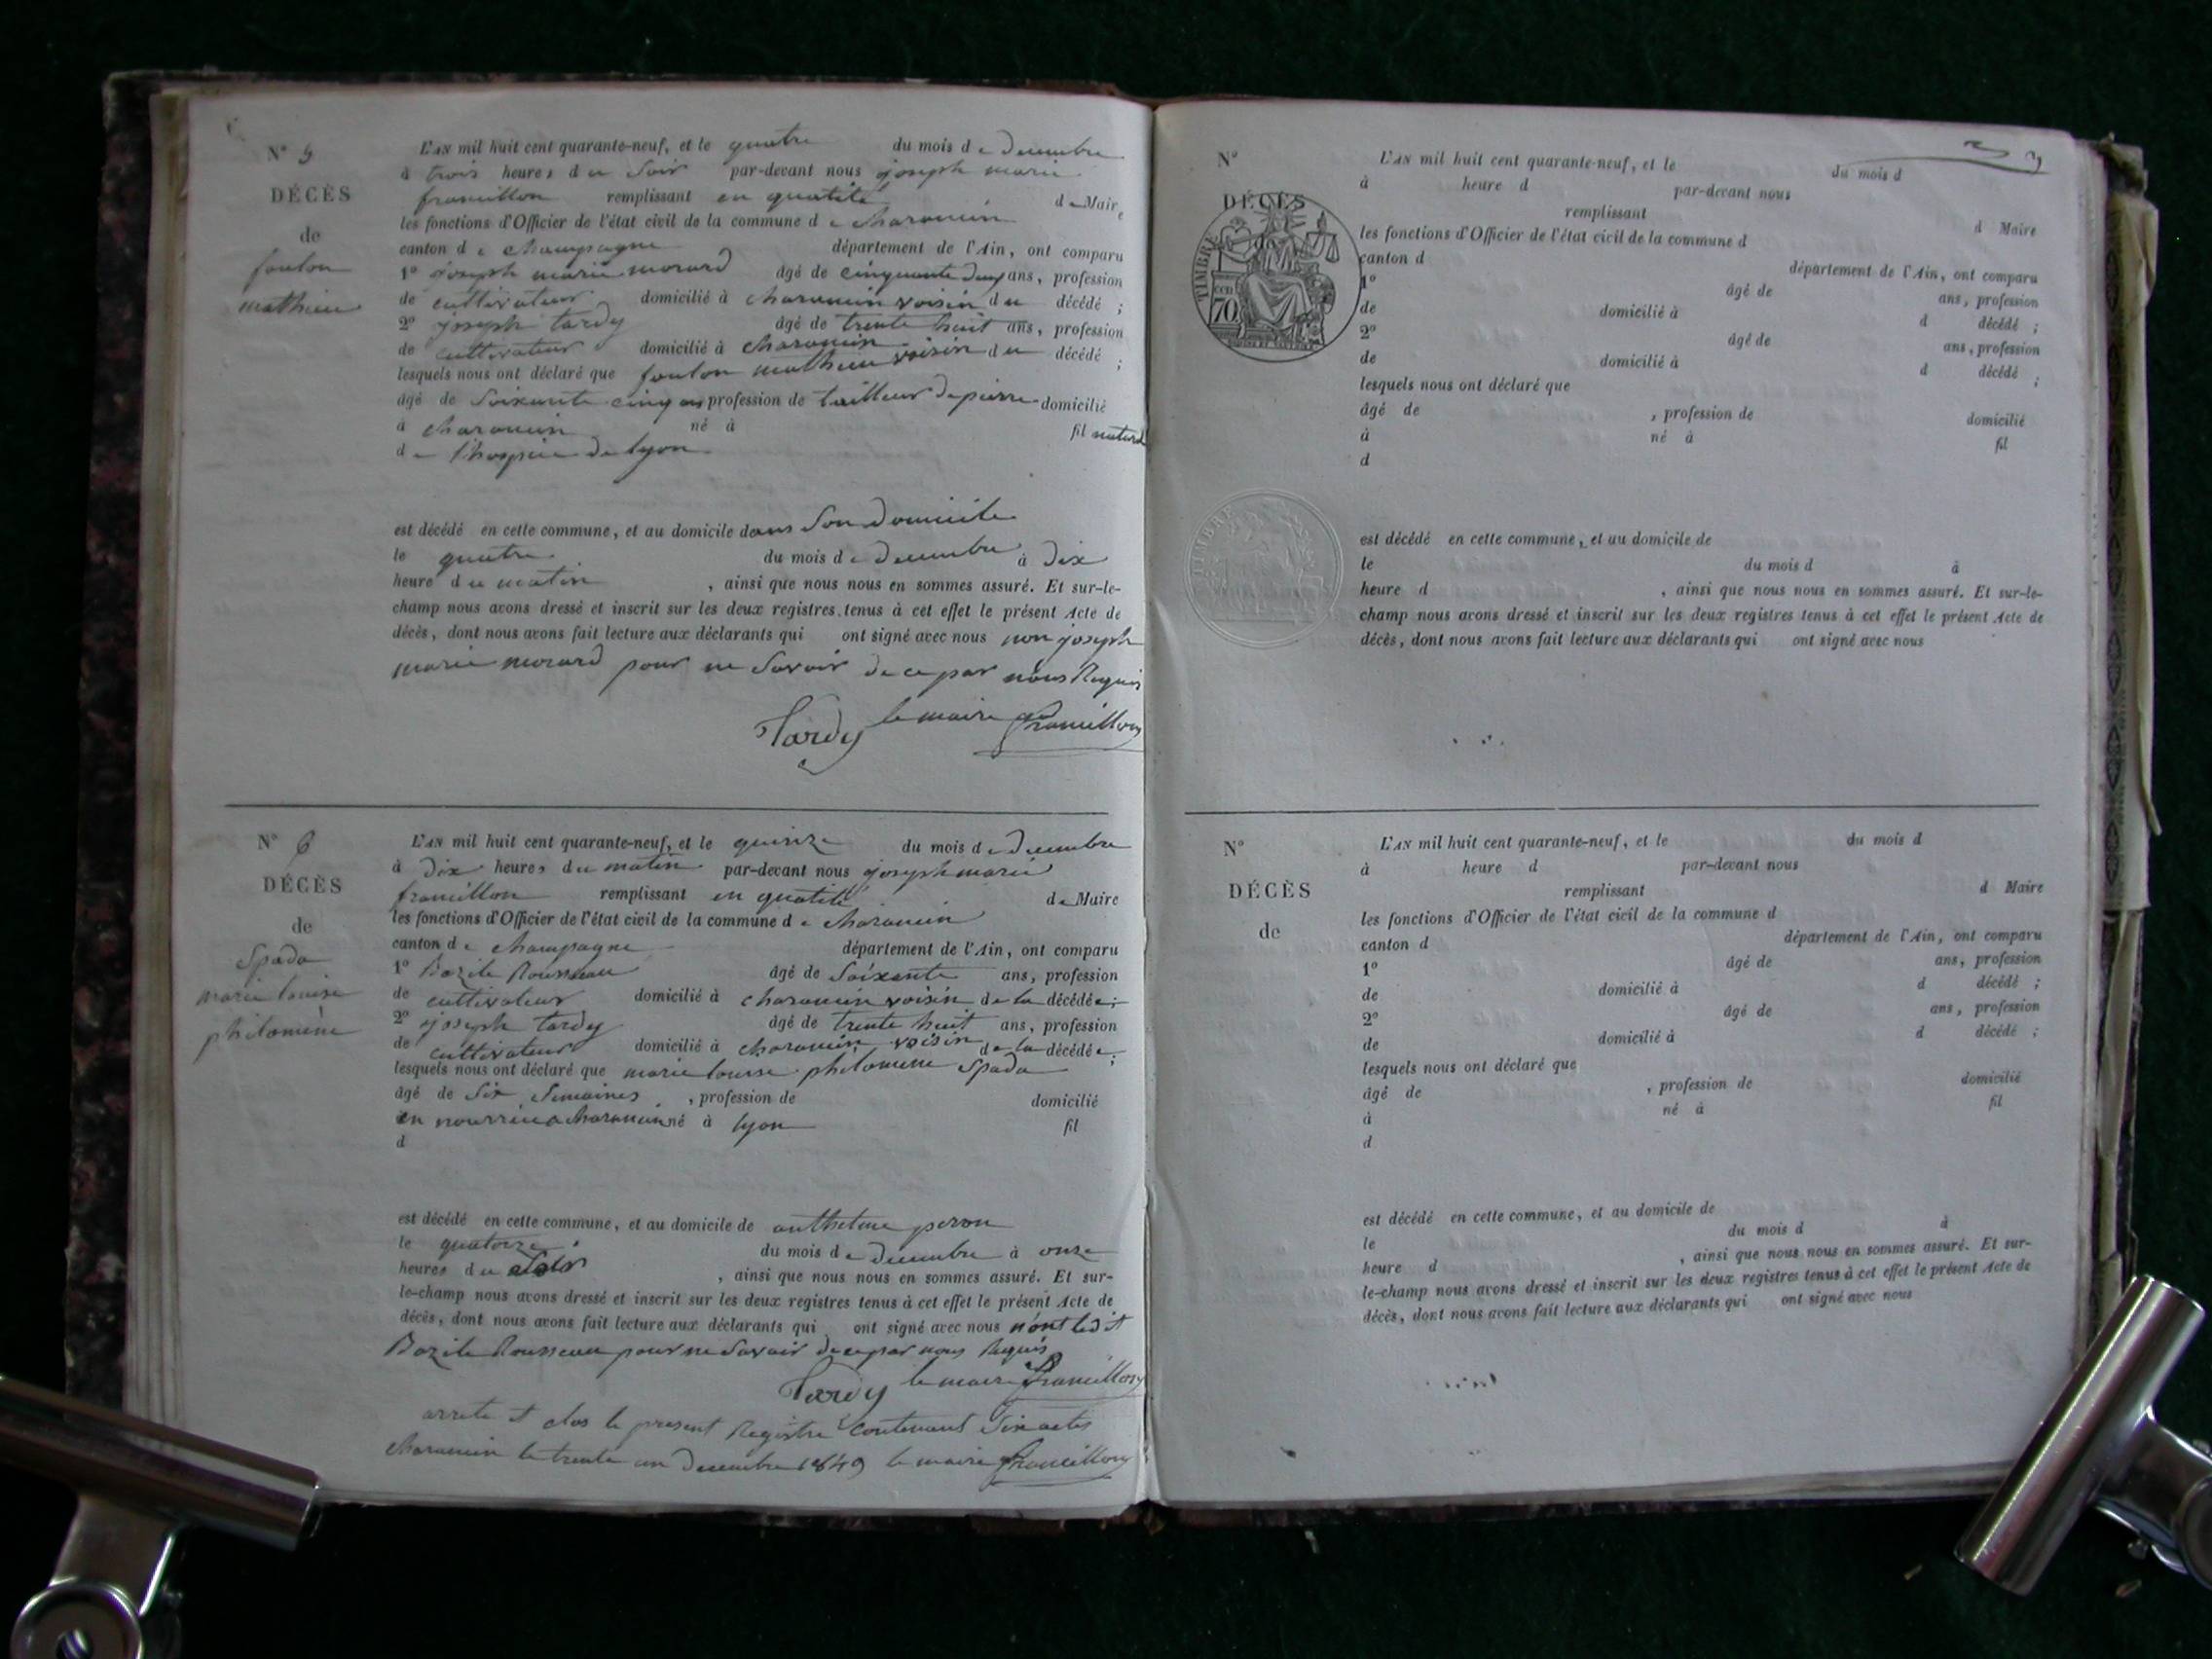 N° 5
DÉCÈS
de
foulon
mathieu
L'AN mil huit cent quarante-neuf, et le quatre du mois de decembre
à trois heures du soir par-devant nous joseph marie
francillon remplissant en qualité de Maire
les fonctions d'Officier de l'état civil de la commune de charancin
canton de champagne département de l'Ain, ont comparu
1° joseph marie morard âgé de cinquante deux ans, profession
de cultivateur domicilié à charancin voisin du décédé ;
2° joseph tardy âgé de trente huit ans, profession
de cultivateur domicilié à charancin voisin du décédé ;
lesquels nous ont déclaré que foulon mathieu
âgé de soixante cinq ans profession de tailleur de pierre domicilié
à charancin né à fil naturel
de l'hospice de lyon
est décédé en cette commune, et au domicile dans son domicile
le quatre du mois de decembre à dix
heure du matin , ainsi que nous nous en sommes assuré. Et sur-le-
champ nous avons dressé et inscrit sur les deux registres tenus à cet effet le présent Acte de
décès, dont nous avons fait lecture aux déclarants qui ont signé avec nous non joseph
marie morard pour ne savoir de ce par nous Requis
Tardy le maire francillon
N° 6
DÉCÈS
de
Spada
marie louise
philomène
L'AN mil huit cent quarante-neuf, et le quinze du mois de decembre
à dix heures du matin par-devant nous joseph marie
francillon remplissant en qualité de Maire
les fonctions d'Officier de l'état civil de la commune de charancin
canton de champagne département de l'Ain, ont comparu
1° Bazile Rousseau âgé de soixante ans, profession
de cultivateur domicilié à charancin voisin de la décédée ;
2° joseph tardy âgé de trente huit ans, profession
de cultivateur domicilié à charancin voisin de la décédée ;
lesquels nous ont déclaré que marie louise philomene Spada
âgé de six semaines , profession de domicilié
en nourrice a charancin né à lyon fil
d
est décédé en cette commune, et au domicile de anthelme peron
le quatorze du mois de decembre à onze
heures du soir , ainsi que nous nous en sommes assuré. Et sur-
le-champ nous avons dressé et inscrit sur les deux registres tenus à cet effet le présent Acte de
décès, dont nous avons fait lecture aux déclarants qui ont signé avec nous non ledit
Bazile Rousseau pour ne savoir de ce par nous Requis
Tardy le maire francillon
arrete et clos le present Registre contenant six actes
charancin le trente un decembre 1849 le maire francillon
N°
DÉCÈS
de
TIMBRE
70
TIMBRE
L'AN mil huit cent quarante-neuf, et le du mois d
à heure d par-devant nous
remplissant d Maire
les fonctions d'Officier de l'état civil de la commune d
canton d département de l'Ain, ont comparu
1° âgé de ans, profession
de domicilié à d décédé ;
2° âgé de ans, profession
de domicilié à d décédé ;
lesquels nous ont déclaré que
âgé de , profession de domicilié
à né à fil
d
est décédé en cette commune, et au domicile de
le du mois d à
heure d , ainsi que nous nous en sommes assuré. Et sur-le-
champ nous avons dressé et inscrit sur les deux registres tenus à cet effet le présent Acte de
décès, dont nous avons fait lecture aux déclarants qui ont signé avec nous
N°
DÉCÈS
de
L'AN mil huit cent quarante-neuf, et le du mois d
à heure d par-devant nous
remplissant d Maire
les fonctions d'Officier de l'état civil de la commune d
canton d département de l'Ain, ont comparu
1° âgé de ans, profession
de domicilié à d décédé ;
2° âgé de ans, profession
de domicilié à d décédé ;
lesquels nous ont déclaré que
âgé de , profession de domicilié
à né à fil
d
est décédé en cette commune, et au domicile de
le du mois d à
heure d , ainsi que nous nous en sommes assuré. Et sur-
le-champ nous avons dressé et inscrit sur les deux registres tenus à cet effet le présent Acte de
décès, dont nous avons fait lecture aux déclarants qui ont signé avec nous